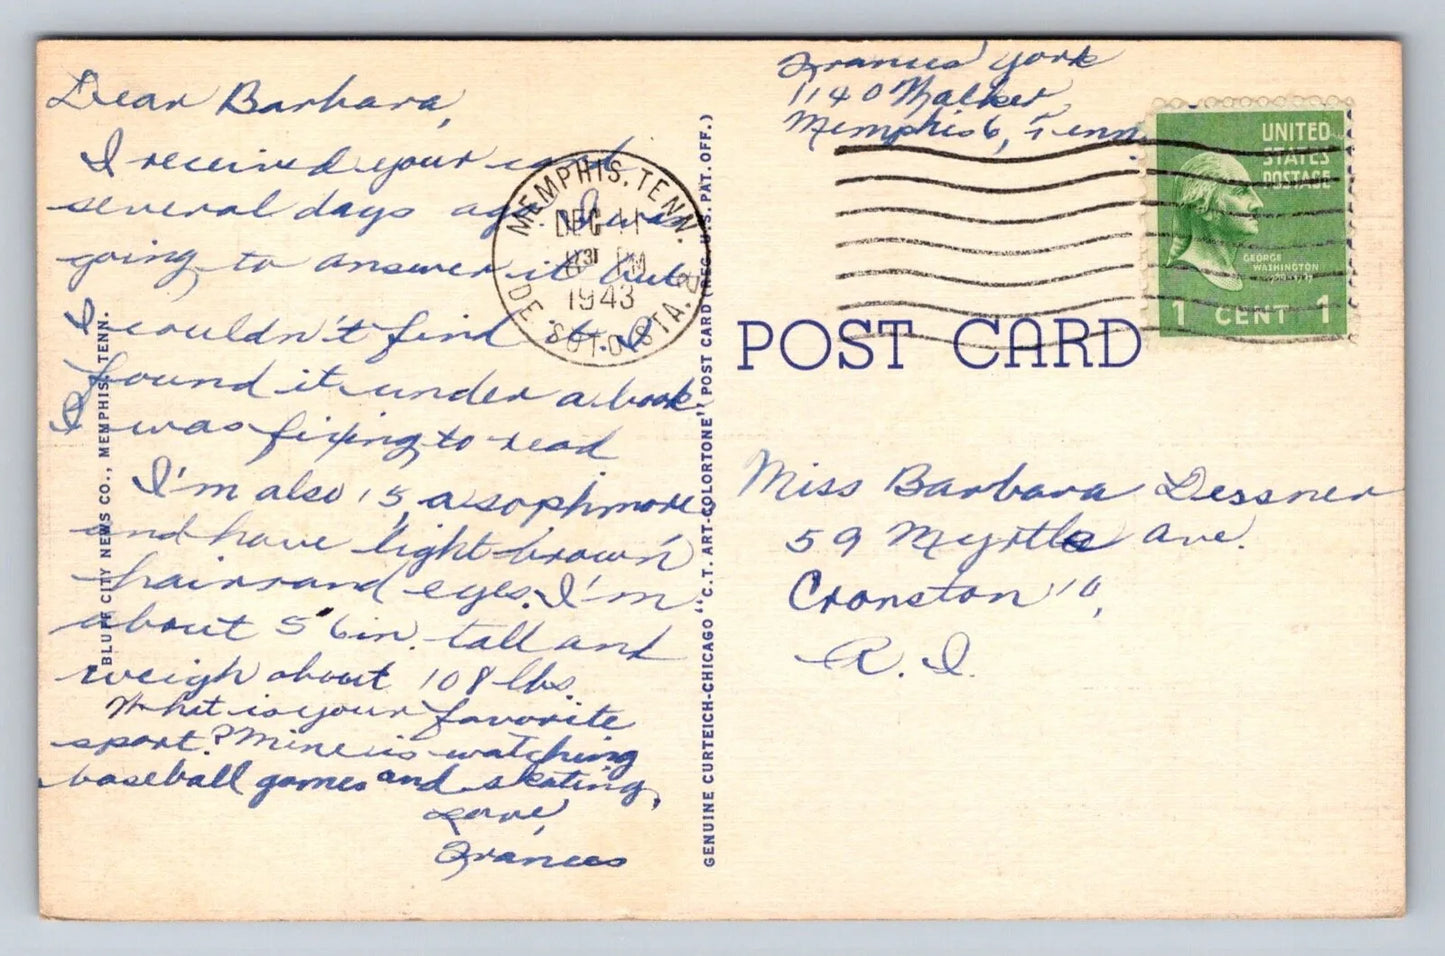 Dear Barbara,
I received your card
several days ago I was
going to answer it but
I couldn't find it. I
found it under a book
I was fixing to read
I'm also 15, a sophmore
and have light brown
hair and eyes. I'm
about 5' 6in. tall and
weigh about 108 lbs.
What is your favorite
sport? Mine is watching
baseball games and skating.
Love,
Frances
BLUFF CITY NEWS CO., MEMPHIS, TENN.
MEMPHIS, TENN.
DEC 11
PM
1943
DE SOTO STA. 2
GENUINE CURTEICH-CHICAGO "C.T. ART-COLORTONE" POST CARD (REG. U.S. PAT. OFF.)
Frances York
1140 Walker
Memphis 6, Tenn.
UNITED
STATES
POSTAGE
GEORGE
WASHINGTON
1 CENT 1
POST CARD
Miss Barbara Dessner
59 Myrtle Ave.
Cranston 10,
R. I.